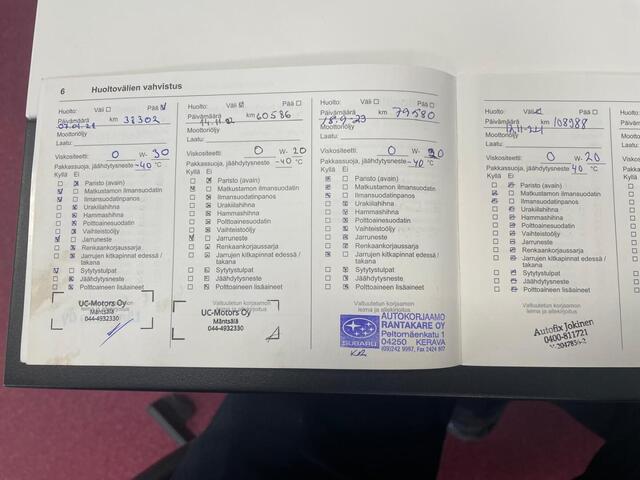 6 Huoltovälien vahvistus
Huolto: Väli Pää
Päivämäärä km 38302
07.01.21
Moottoriöljy
Laatu:
Viskositeetti: 0 W- 30
Pakkassuoja, jäähdytysneste -40 °C
Kyllä Ei
Paristo (avain)
Matkustamon ilmansuodatin
Ilmansuodatinpanos
Urakiilahihna
Hammashihna
Polttoainesuodatin
Vaihteistoöljy
Jarruneste
Renkaankorjaussarja
Jarrujen kitkapinnat edessä /
takana
Sytytystulpat
Jäähdytysneste
Polttoaineen lisäaineet
UC-Motors Oy
Mäntsälä
044-4932330
Huolto: Väli Pää
Päivämäärä km 60586
14.11.22
Moottoriöljy
Laatu:
Viskositeetti: 0 W- 20
Pakkassuoja, jäähdytysneste -40 °C
Kyllä Ei
Paristo (avain)
Matkustamon ilmansuodatin
Ilmansuodatinpanos
Urakiilahihna
Hammashihna
Polttoainesuodatin
Vaihteistoöljy
Jarruneste
Renkaankorjaussarja
Jarrujen kitkapinnat edessä /
takana
Sytytystulpat
Jäähdytysneste
Polttoaineen lisäaineet
Valtuutetun korjaamon
UC-Motors Oy
Mäntsälä
044-4932330
Huolto: Väli Pää
Päivämäärä km 79580
18.9-23
Moottoriöljy
Laatu:
Viskositeetti: 0 W- 20
Pakkassuoja, jäähdytysneste -40 °C
Kyllä Ei
Paristo (avain)
Matkustamon ilmansuodatin
Ilmansuodatinpanos
Urakiilahihna
Hammashihna
Polttoainesuodatin
Vaihteistoöljy
Jarruneste
Renkaankorjaussarja
Jarrujen kitkapinnat edessä /
takana
Sytytystulpat
Jäähdytysneste
Polttoaineen lisäaineet
Valtuutetun korjaamon
leima ja allekirjoitus
AUTOKORJAAMO
RANTAKARE OY
Peltomäenkatu 1
04250 KERAVA
(09)242 9997, Fax 2424 807
SUBARU
Huolto: Väli Pää
Päivämäärä km 108988
Moottoriöljy
Laatu:
Viskositeetti: 0 W- 20
Pakkassuoja, jäähdytysneste 40 °C
Kyllä Ei
Paristo (avain)
Matkustamon ilmansuodatin
Ilmansuodatinpanos
Urakiilahihna
Hammashihna
Polttoainesuodatin
Vaihteistoöljy
Jarruneste
Renkaankorjaussarja
Jarrujen kitkapinnat edessä /
takana
Sytytystulpat
Jäähdytysneste
Polttoaineen lisäaineet
Valtuutetun korjaamon
leima ja allekirjoitus
Autofix Jokinen
0400-811721